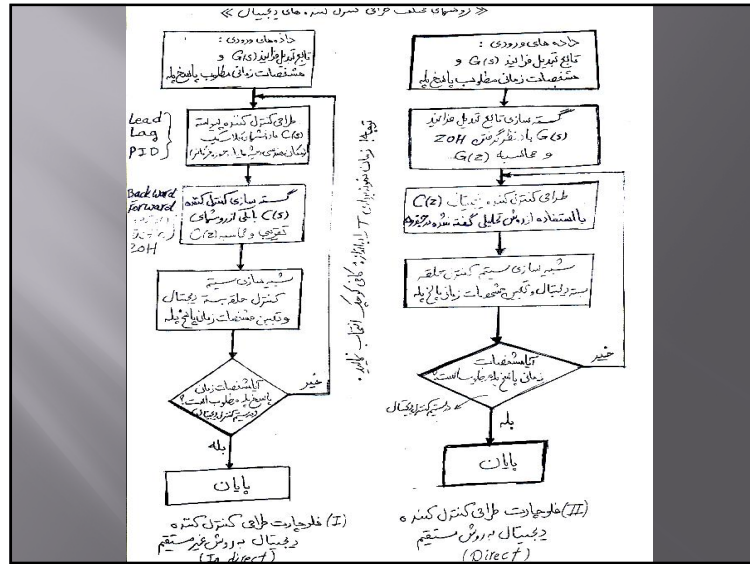 « روشهای مختلف طراحی کنترل کننده های دیجیتال »
داده های ورودی :
تابع تبدیل فرایند G(s) و
مشخصات زمانی مطلوب پاسخ پله
Lead
Lag
PID
طراحی کنترل کننده پیوسته
C(s)
Backward
Forward
ZOH
گسسته سازی کنترل کننده
C(s) با یکی از روشهای
تقریبی و محاسبه C(z)
شبیه سازی سیستم
کنترل حلقه بسته دیجیتال
و تعیین مشخصات زمانی پاسخ پله
آیا مشخصات زمانی
پاسخ پله مطلوب است؟
(در سیستم کنترل دیجیتال)
خیر
بله
پایان
(I) فلوچارت طراحی کنترل کننده
دیجیتال به روش غیر مستقیم
(In direct)
توجه: زمان نمونه برداری T را به اندازه کافی کوچک انتخاب نمائید.
داده های ورودی :
تابع تبدیل فرایند G(s) و
مشخصات زمانی مطلوب پاسخ پله
گسسته سازی تابع تبدیل فرایند
G(s) با در نظر گرفتن ZOH
و محاسبه G(z)
طراحی کنترل کننده دیجیتال C(z)
با استفاده از روش تحلیلی گفته شده در
شبیه سازی سیستم کنترل حلقه
بسته دیجیتال و تعیین مشخصات زمانی پاسخ پله
آیا مشخصات
زمانی پاسخ پله مطلوب است؟
خیر
در سیستم کنترل دیجیتال
بله
پایان
(II) فلوچارت طراحی کنترل کننده
دیجیتال به روش مستقیم
(Direct)